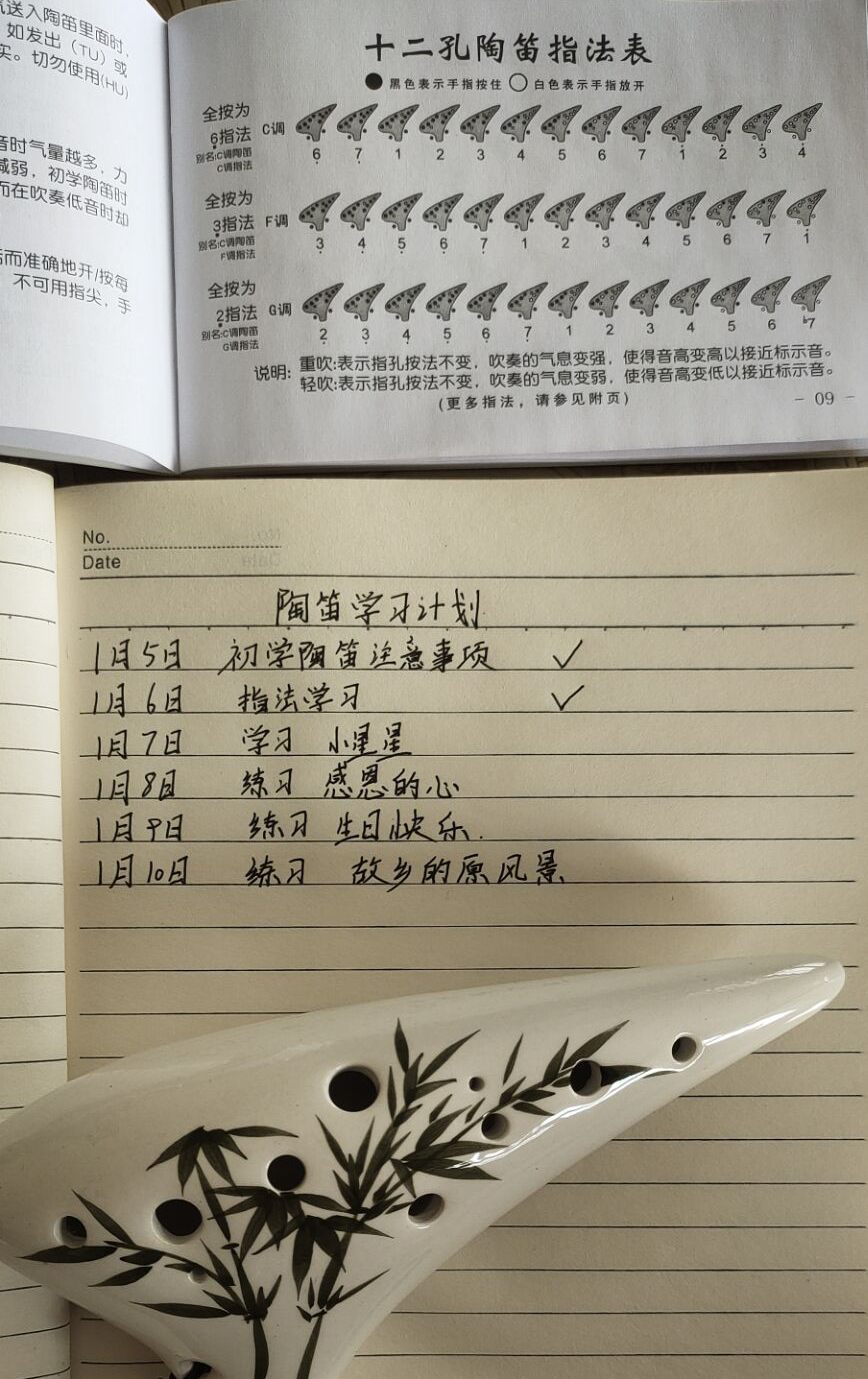 气送入陶笛里面时,
如发出（TU）或
实。切勿使用(HU)
音时气量越多，力
减弱，初学陶笛时
而在吹奏低音时却
活而准确地开/按每
不可用指尖，手
十二孔陶笛指法表
黑色表示手指按住 白色表示手指放开
全按为
6̣指法
别名:C调陶笛
C调指法
C调
6̣ 7̣ 1 2 3 4 5 6 7 1̇ 2̇ 3̇ 4̇
全按为
3̣指法
别名:C调陶笛
F调指法
F调
3̣ 4̣ 5̣ 6̣ 7̣ 1 2 3 4 5 6 7 1̇
全按为
2̣指法
别名:C调陶笛
G调指法
G调
2̣ 3̣ 4̣ 5̣ 6̣ 7̣ 1 2 3 4 5 6 ♭7
说明: 重吹:表示指孔按法不变，吹奏的气息变强，使得音高变高以接近标示音。
轻吹:表示指孔按法不变，吹奏的气息变弱，使得音高变低以接近标示音。
(更多指法，请参见附页)
- 09 -
No.
Date
陶笛学习计划
1月5日 初学陶笛注意事项 ✓
1月6日 指法学习 ✓
1月7日 学习 小星星
1月8日 练习 感恩的心
1月9日 练习 生日快乐.
1月10日 练习 故乡的原风景